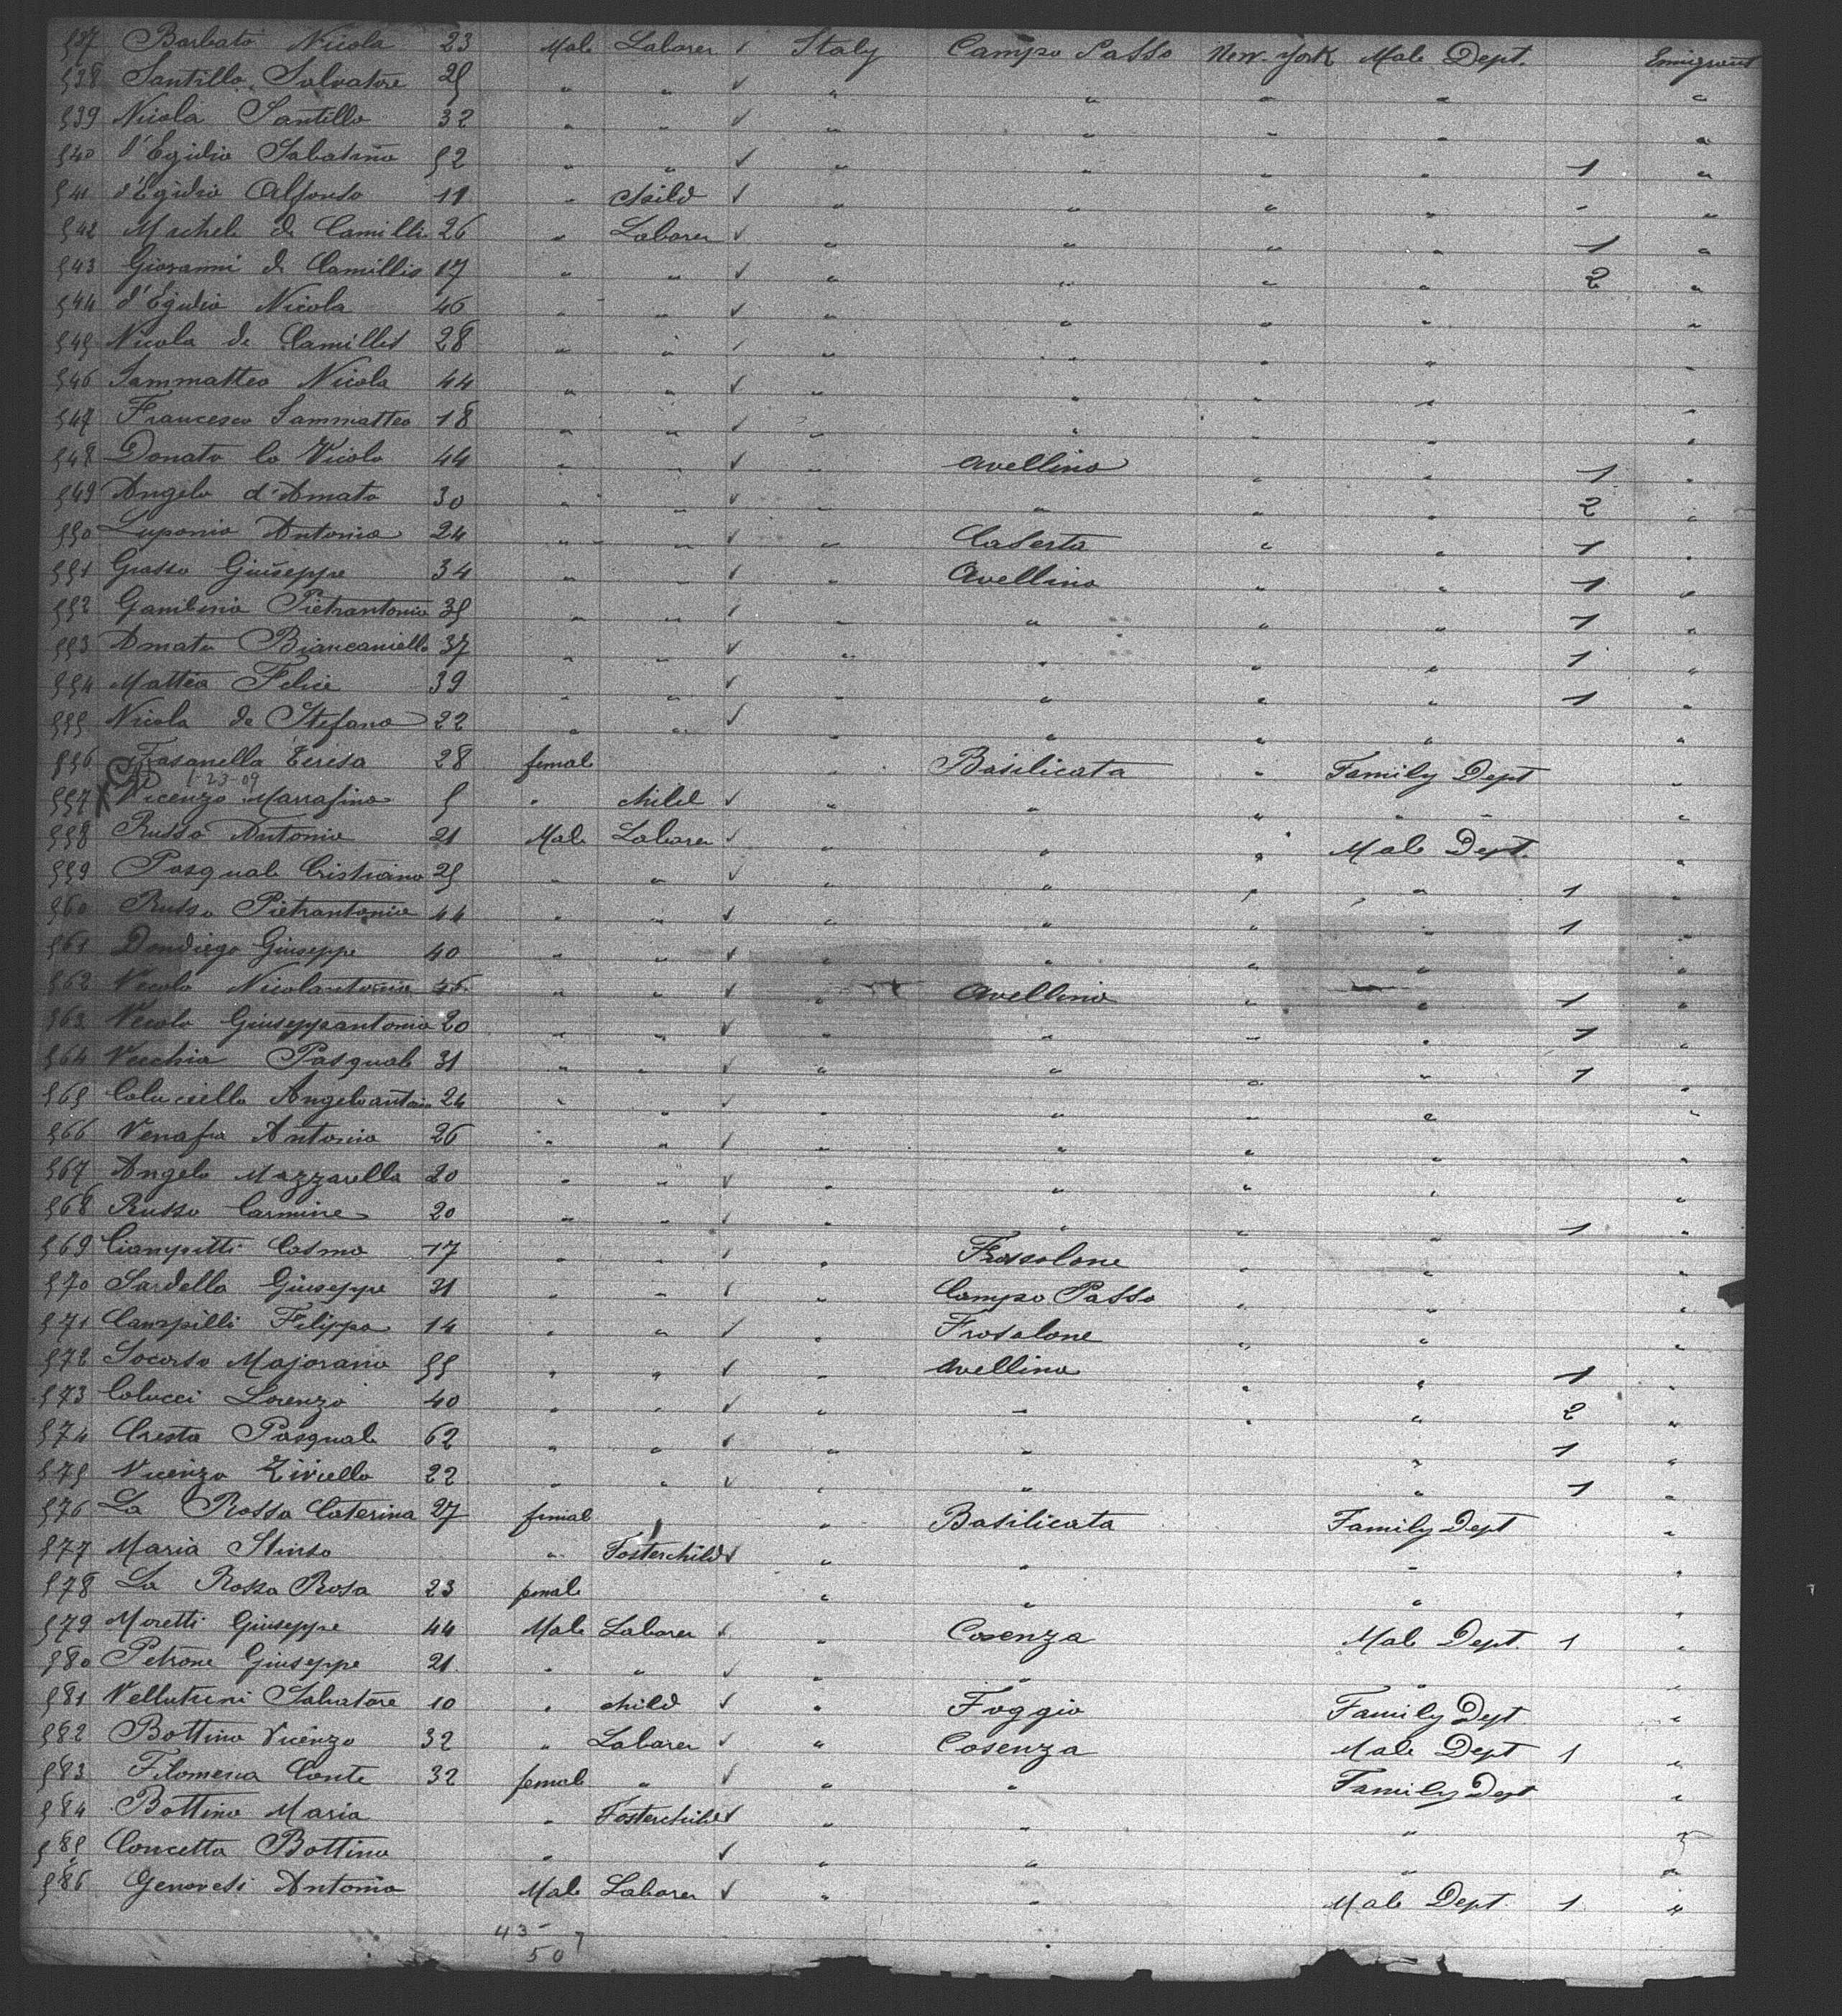 537 Barbato Nicola 23 Male Laborer ✓ Italy Campo Passo New-York Male Dept. Emigrant
538 Santillo Salvatore 25 " " ✓ " " " " "
539 Nicola Santillo 32 " " ✓ " " " " "
540 d'Egidio Sabatino 52 " " ✓ " " " " 1 "
541 d'Egidio Alfonso 11 " Child ✓ " " " " - "
542 Michele de Camillis 26 " Laborer ✓ " " " " 1 "
543 Giovanni de Camillis 17 " " ✓ " " " " 2 "
544 d'Egidio Nicola 46 " ✓ " " " " "
545 Nicola de Camillis 28 " " ✓ " " " " "
546 Sammatteo Nicola 44 " " ✓ " " " "
547 Francesco Sammatteo 18 " " ✓ " " " " "
548 Donato lo Vicolo 44 " " ✓ " Avellino " " 1 "
549 Angelo d'Amato 30 " " ✓ " " " " 2 "
550 Luponio Antonio 24 " " ✓ " Caserta " " 1 "
551 Grasso Giuseppe 34 " " ✓ " Avellino " " 1 "
552 Gambino Pietrantonio 35 " " ✓ " " " " 1 "
553 Amato Biancaniello 37 " " ✓ " " " " 1 "
554 Matteo Felice 39 " " ✓ " " " " 1 "
555 Nicola de Stefano 22 " " ✓ " " " " "
556 Fasanella Teresa 28 female " Basilicata " Family Dept "
1-23-09
557 Vicenzo Marrafino 5 " child ✓ " " " " "
558 Russo Antonio 21 Male Laborer ✓ " " " Male Dept. "
559 Pasquale Cristiano 25 " " ✓ " " " " 1 "
560 Russo Pietrantonio 44 " " ✓ " " " " 1 "
561 Dondiego Giuseppe 40 " " ✓ " " " " "
562 Vecolo Nicolantonio 46 " " ✓ " Avellino " " 1 "
563 Vecolo Giuseppeantonio 20 " " ✓ " " " " 1 "
564 Vecchia Pasquale 31 " " ✓ " " " " 1 "
565 Coluciello Angeloantonio 24 " " ✓ " " " " "
566 Venafra Antonio 26 " " ✓ " " " " "
567 Angelo Mazzarella 20 " " ✓ " " " " "
568 Russo Carmine 20 " " ✓ " " " " 1 "
569 Ciampitti Cosmo 17 " " ✓ " Frosolone " " "
570 Sardella Giuseppe 31 " " ✓ " Campo Passo " " "
571 Campilli Filippo 14 " " ✓ " Frosolone " " "
572 Socorso Majorano 55 " " ✓ " Avellino " " 1 "
573 Colucci Lorenzo 40 " " ✓ " " " " 2 "
574 Cresta Pasquale 62 " " ✓ " " " 1 "
575 Vicenzo Ziviello 22 " " ✓ " " " 1 "
576 La Rossa Caterina 27 female " Basilicata Family Dept "
577 Maria Stinso " Fosterchild ✓ " " " "
578 La Rossa Rosa 23 female " " " "
579 Moretti Giuseppe 44 Male Laborer ✓ " Cosenza Male Dept. 1 "
580 Petrone Giuseppe 21 " " ✓ " " " "
581 Vellutrini Salvatore 10 " child ✓ " Foggia Family Dept "
582 Bottino Vicenzo 32 " Laborer ✓ " Cosenza Male Dept 1 "
583 Filomena Conte 32 female " ✓ " " Family Dept "
584 Bottino Maria " Fosterchild ✓ " " "
585 Concetta Bottino " ✓ " " " "
586 Genovesi Antonio Male Laborer ✓ " " Male Dept. 1 "
43 - 7
50